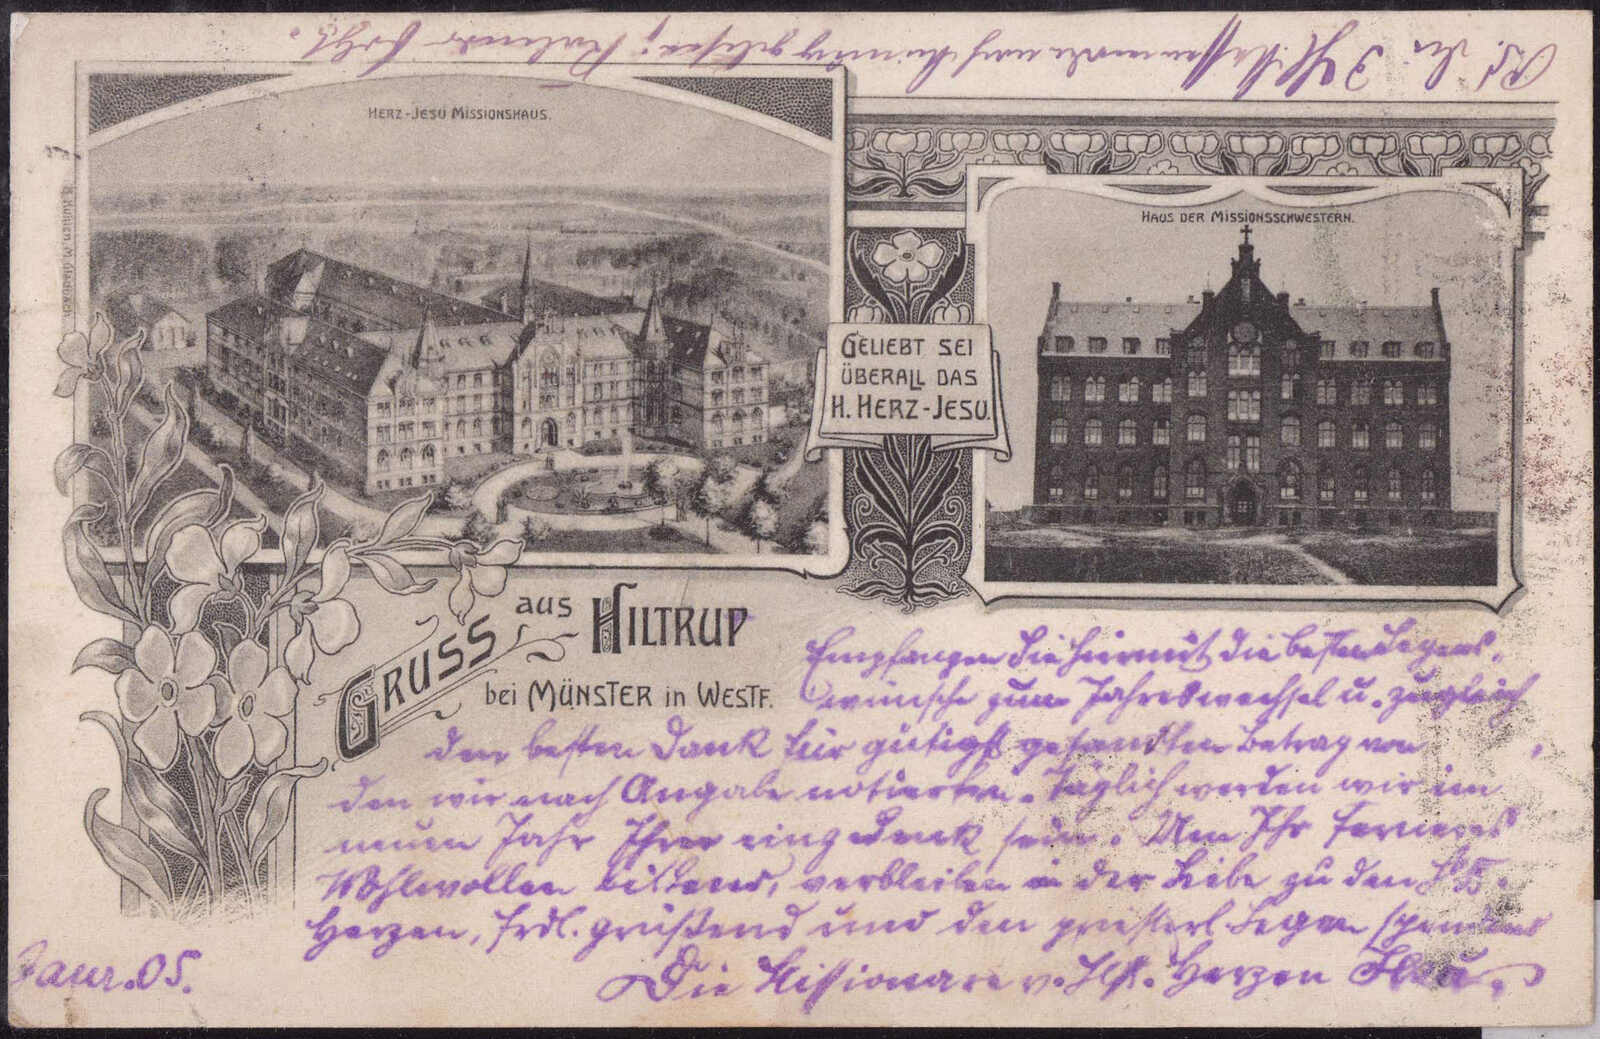 HERZ-JESU MISSIONSHAUS.
HAUS DER MISSIONSSCHWESTERN.
GELIEBT SEI
ÜBERALL DAS
H. HERZ-JESU.
GRUSS aus HILTRUP
bei MÜNSTER in WESTF.
Empfangen Sie hiermit die besten Segens-
wünsche zum Jahreswechsel u. zugleich
den besten Dank für gütigst gesandten Betrag von
den wir nach Angabe notierten. Täglich werden wir im
neuen Jahr Ihrer eingedenk sein. Um Ihr ferneres
Wohlwollen bittend, verbleiben in der Liebe zu den hh.
Herzen, frdl. grüßend und den priesterl. Segen spendend
Die Missionare v. hlst. Herzen Jesu.
Janr. 05.